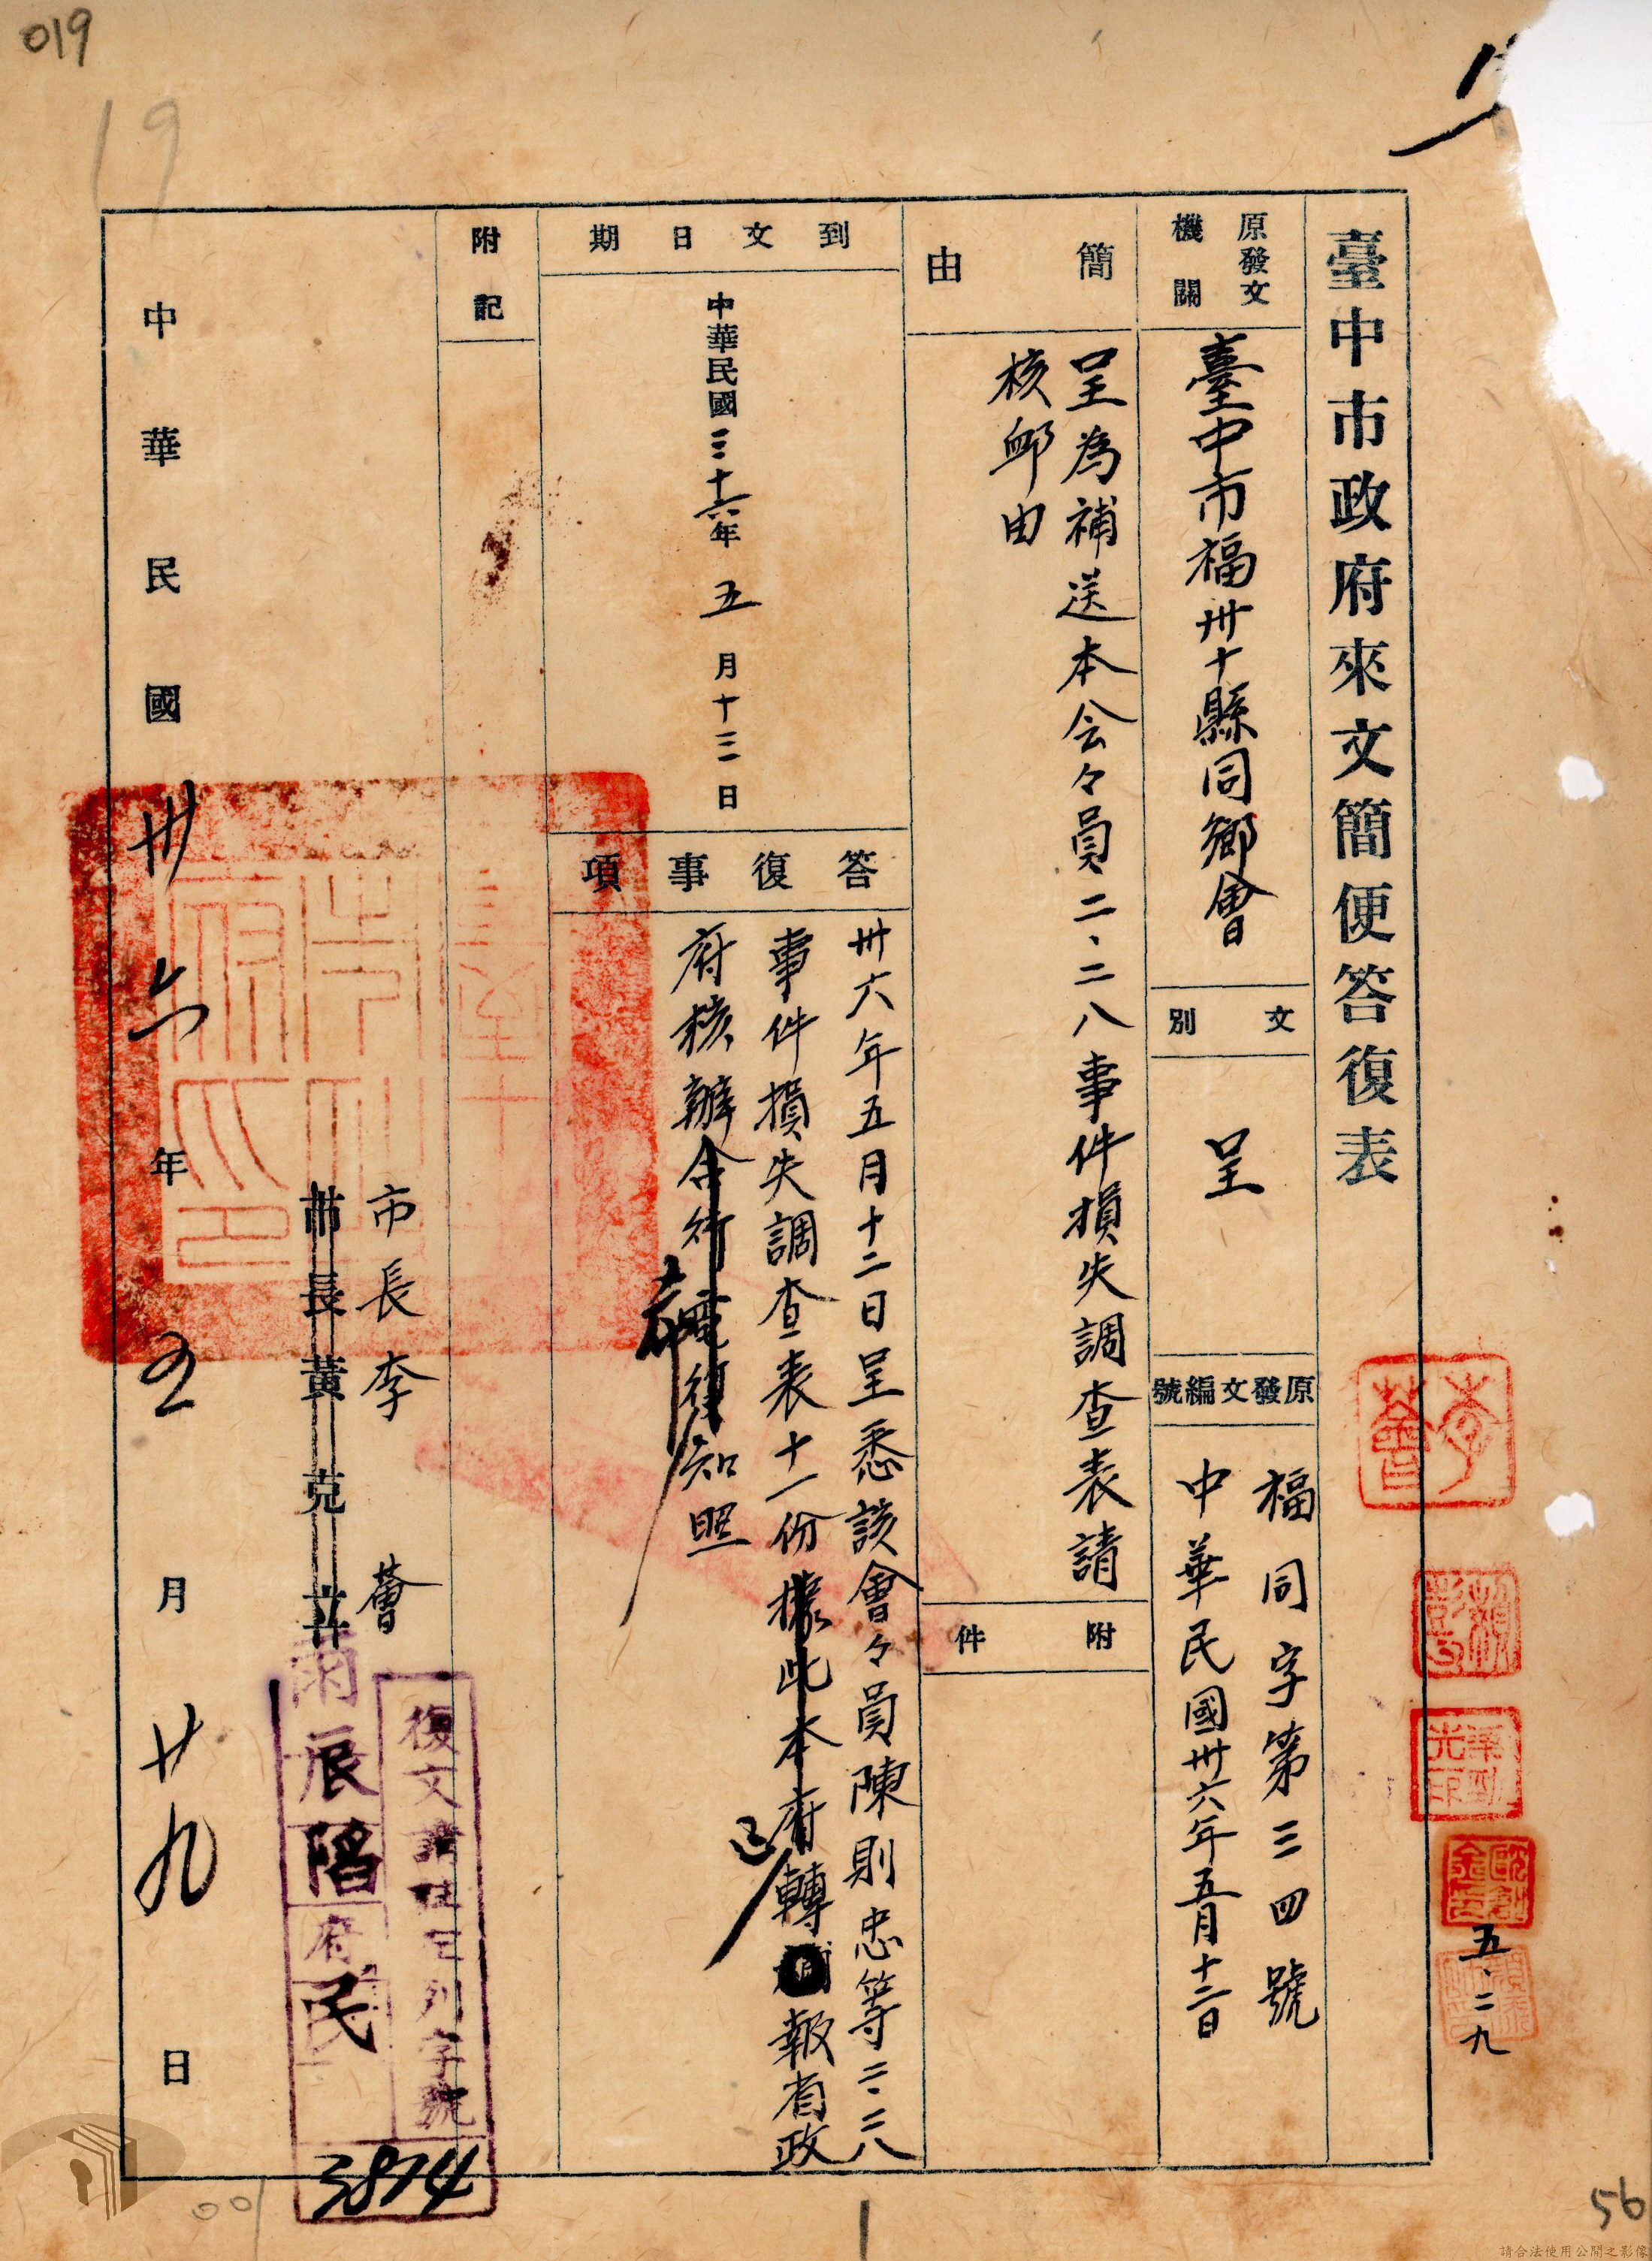 019
19
臺中市政府來文簡便答復表
原發文
機關
臺中市福州十縣同鄉會
文別
呈
原發文編號
福同字第三四號
中華民國卅六年五月十二日
簡由
呈為補送本会々員二、二八事件損失調查表請
核卹由
附件
到文日期
中華民國三十六年五月十三日
答復事項
卅六年五月十二日呈悉該會々員陳則忠等二、二八
事件損失調查表十一份據此本府轉報省政
已
府核辦合行電復知照
希
附記
市長李薈
市長黃克立
復文請註左列字號
辰陷府民
3874
中華民國卅六年五月廿九日
李薈
五、二九
001
1
56
請合法使用公開之影像